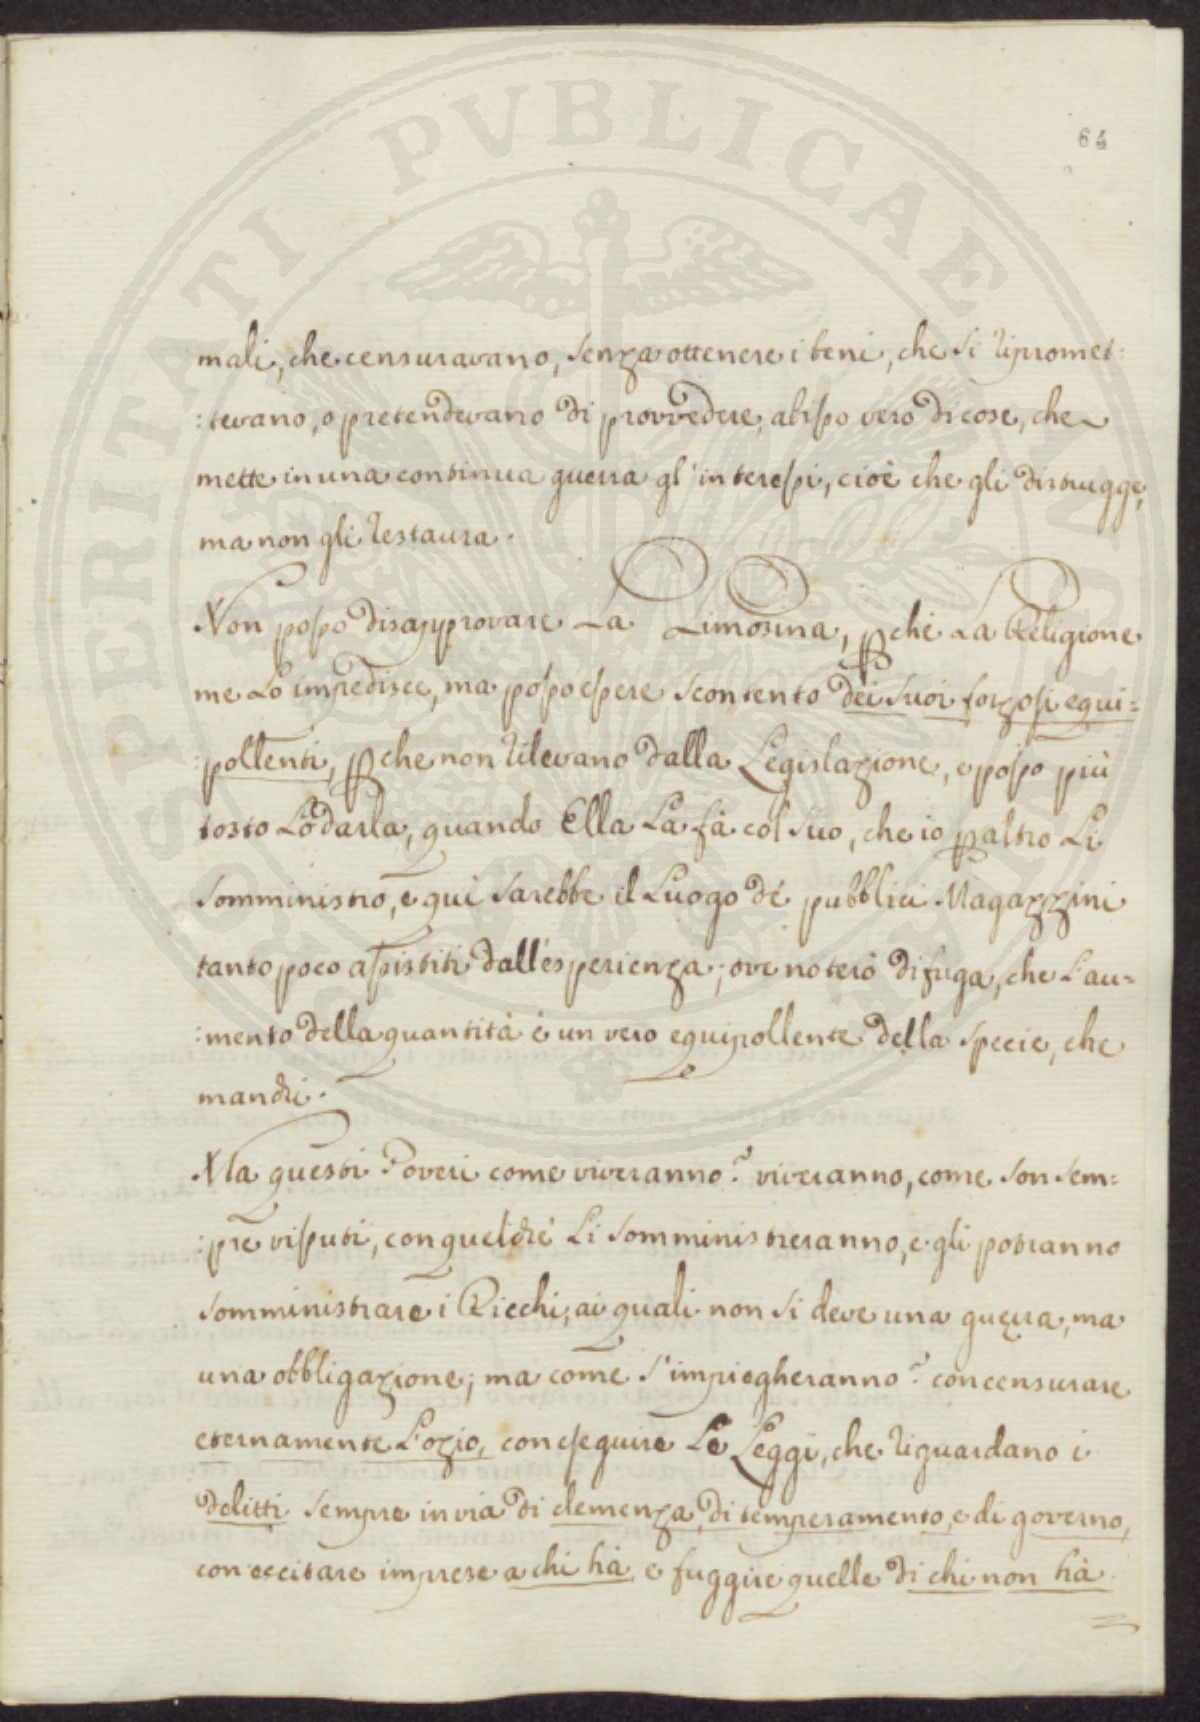 PROSPERITATI PVBLICAE AVGENDAE
64
mali, che censuravano, senza ottenere i beni, che si ripromet:
:tevano, o pretendevano di provvedere, abisso vero di cose, che
mette in una continua guerra gl'interessi, cioè che gli distrugge,
ma non gli restaura.
Non posso disapprovare La Limosina, pche La Religione
me Lo impedisce, ma posso essere scontento dei suoi forzosi equi=
:pollenti, pche non rilevano dalla Legislazione, e posso più
tosto Lodarla, quando Ella La fà col suo, che io p altro Li
somministro, e quì sarebbe il Luogo de' pubblici Magazzini
tanto poco assistiti dall'esperienza; ove noterò di fuga, che L'au=
:mento della quantità è un vero equipollente della specie, che
manchi.
Ma questi Poveri come viveranno? viveranno, come son sem=
:pre vissuti, con quel che Li somministreranno, e gli potranno
somministrare i Ricchi, ai quali non si deve una guerra, ma
una obbligazione; ma come s'impiegheranno? con censurare
eternamente L'ozio, con eseguire Le Leggi, che riguardano i
delitti sempre in via di clemenza, di temperamento, e di governo,
con eccitare imprese a chi hà, e fuggire quelle di chi non hà.